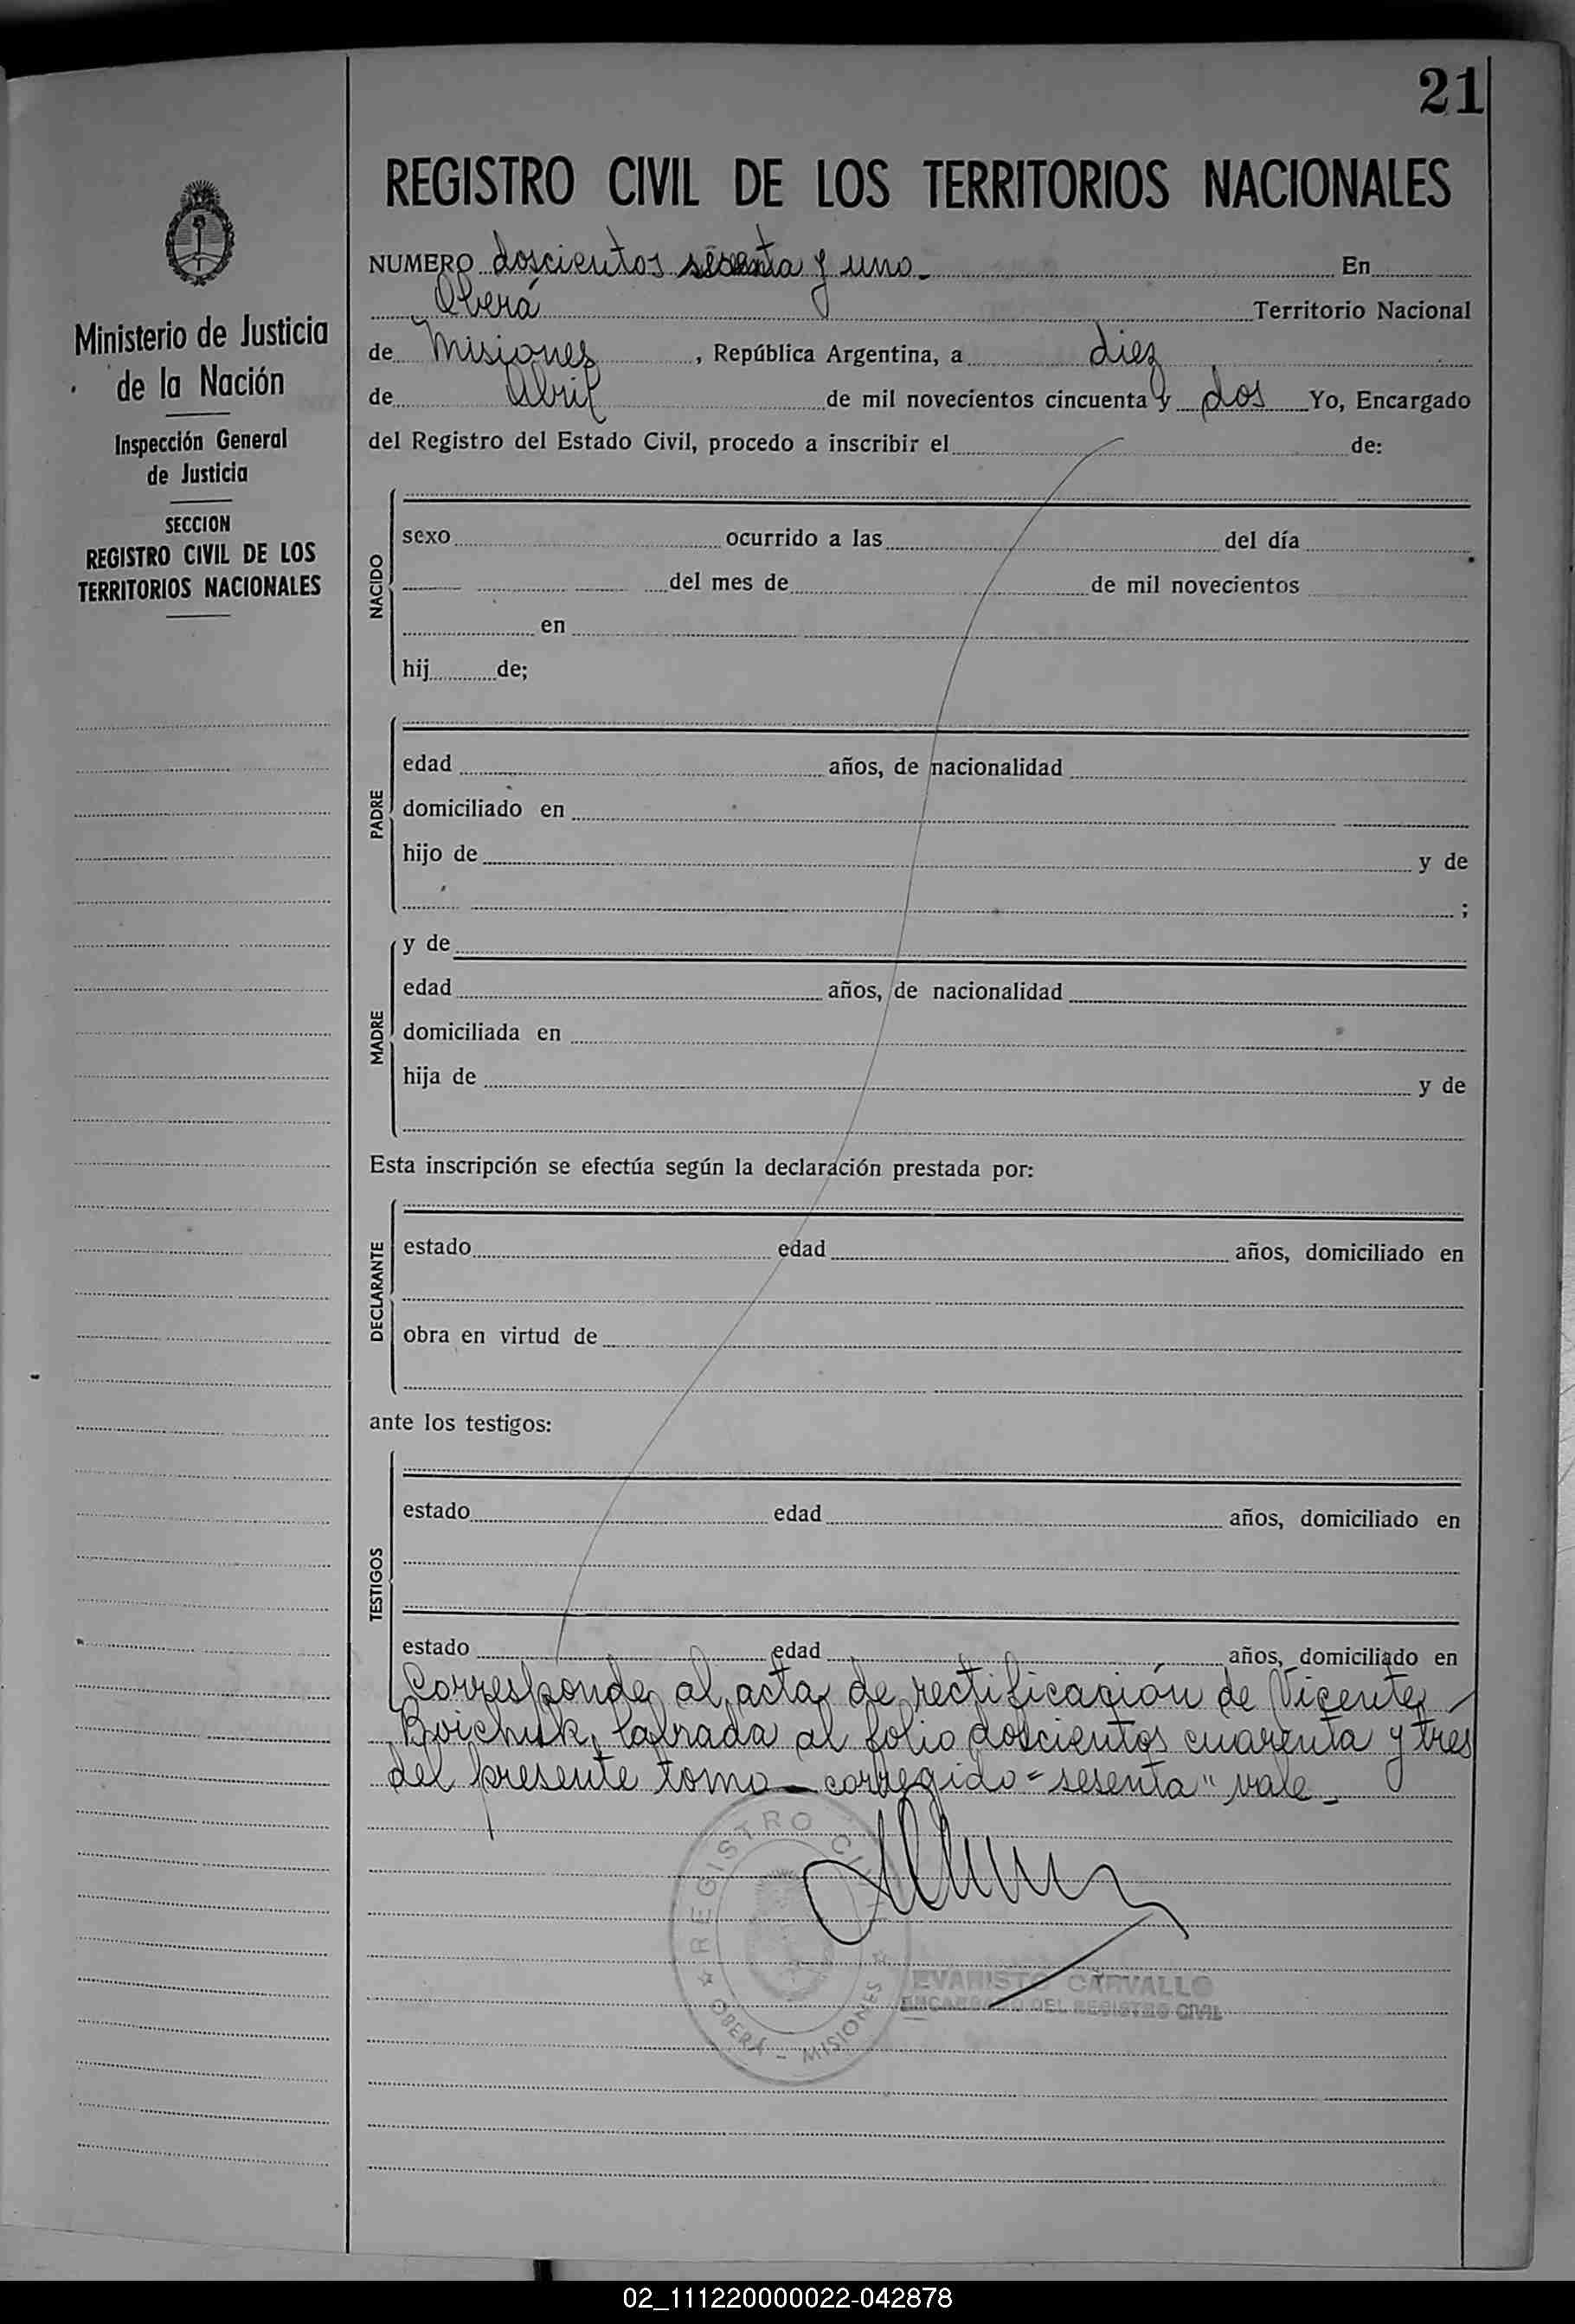 21
REGISTRO CIVIL DE LOS TERRITORIOS NACIONALES
Ministerio de Justicia
de la Nación
Inspección General
de Justicia
SECCION
REGISTRO CIVIL DE LOS
TERRITORIOS NACIONALES
NUMERO doscientos sesenta y uno.- En
Oberá Territorio Nacional
de Misiones, República Argentina, a diez
de Abril de mil novecientos cincuenta y dos Yo, Encargado
del Registro del Estado Civil, procedo a inscribir el de:
NACIDO
sexo ocurrido a las del día
del mes de de mil novecientos
en
hij de;
PADRE
edad años, de nacionalidad
domiciliado en
hijo de y de
;
MADRE
y de
edad años, de nacionalidad
domiciliada en
hija de y de
Esta inscripción se efectúa según la declaración prestada por:
DECLARANTE
estado edad años, domiciliado en
obra en virtud de
ante los testigos:
TESTIGOS
estado edad años, domiciliado en
estado edad años, domiciliado en
Corresponde al acta de rectificación de Vicente
Boichuk, labrada al folio doscientos cuarenta y tres
del presente tomo - corregido = sesenta" vale -
REGISTRO CIVIL
OBERÁ - MISIONES
EVARISTO CARVALLO
ENCARGADO DEL REGISTRO CIVIL
02_111220000022-042878